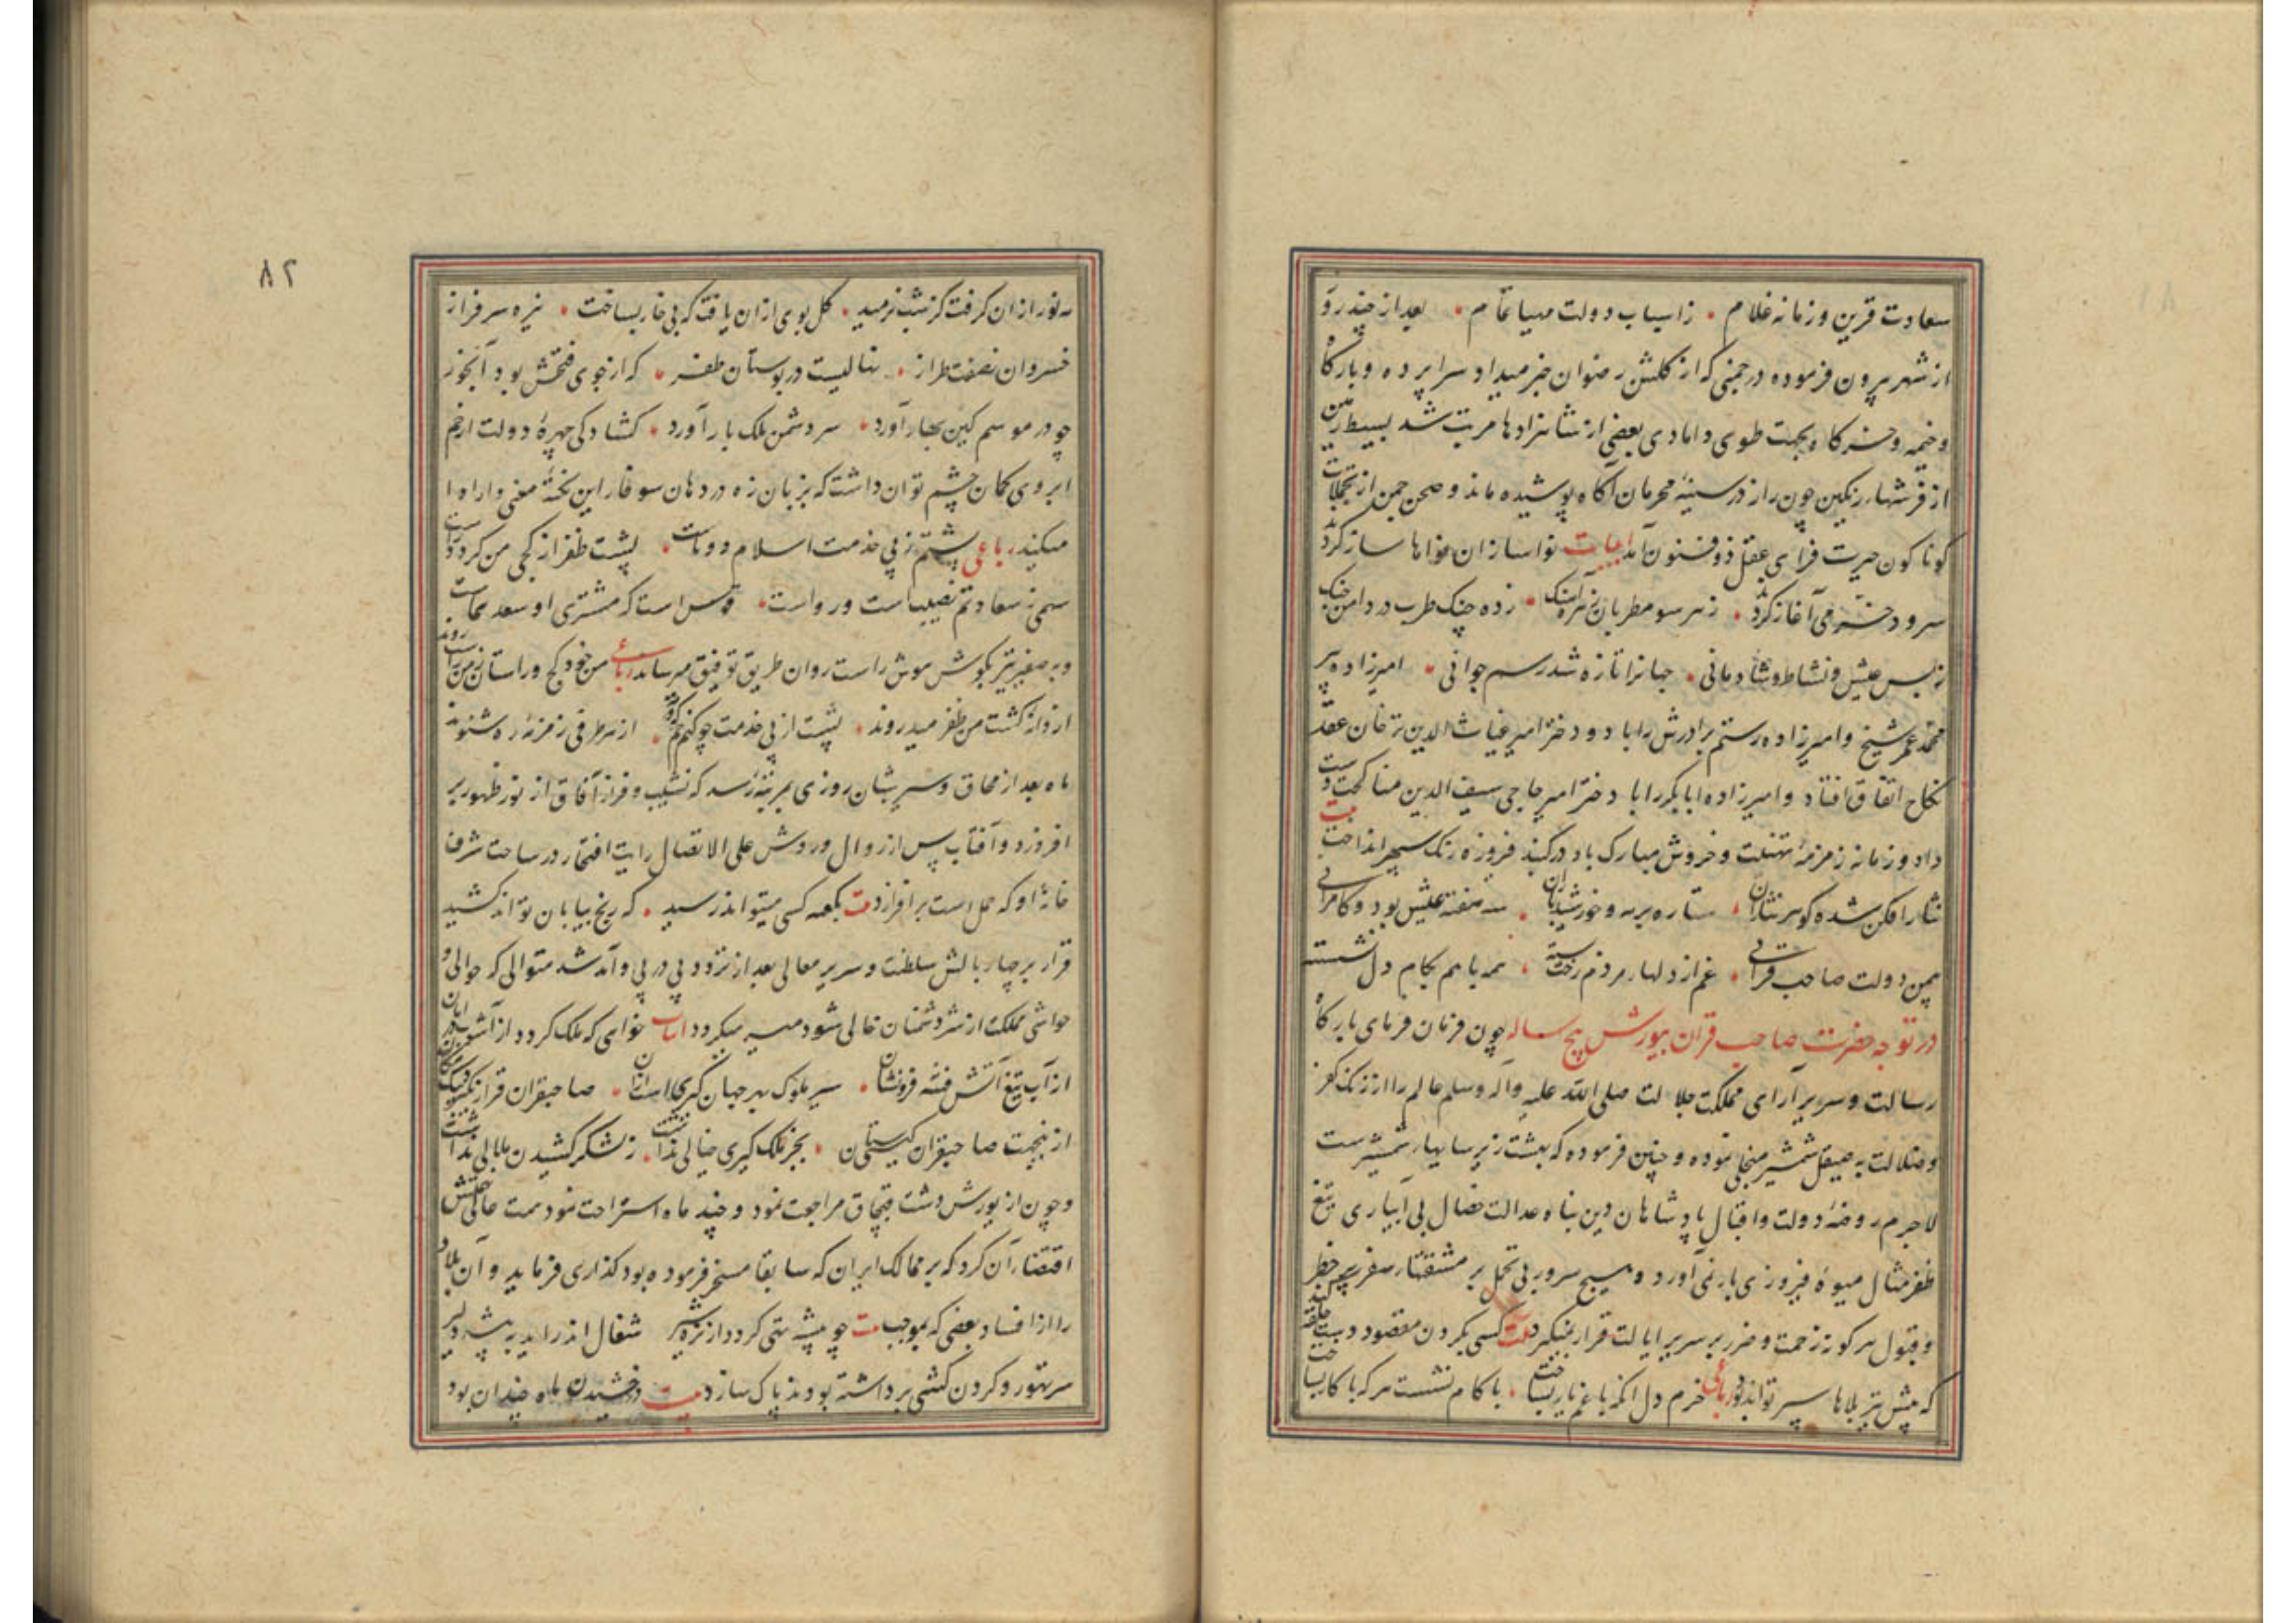 سعادت قرین و زمانه غلام • ز اسباب دولت مهیا تمام • بعد از چند روز
از شهر بیرون فرموده در چمنی که از گلشن رضوان خبر میداد سراپرده و بارگاه
و خیمه و خرگاه بجهت طوی و دامادی بعضی از شاهزادها مرتب شد بسیط زمین
از فرشهاء رنگین چون راز در سینهٔ محرمان آگاه پوشیده ماند و صحن چمن از تجملات
گوناگون حیرت فزای عقل ذوفنون آمد ابیات نواسازان نواها ساز کرده
سرود خسروی آغاز کرده • ز هر سو مطربان زهره آهنگ • زده چنگ طرب در دامن چنگ
ز بس عیش و نشاط و شادمانی • جهانرا تازه شد رسم جوانی • امیرزاده پیر
محمد عمر شیخ و امیرزاده رستم برادرش را با دو دختر امیر غیاث الدین ترخان عقد
نکاح اتفاق افتاد و امیرزاده ابابکر را با دختر امیر حاجی سیف الدین مناکحت دست
داد و زمانه زمزمهٔ تهنیت و خروش مبارک باد در گنبد فیروزه رنگ سپهر انداخت بیت
نثار افکن شده گوهر نثاران • ستاره بر مه و خورشید باران • سه هفته عیش بود و کامرانی
بیمن دولت صاحب قرانی • غم از دلهاء مردم رخت بسته • همه با هم بکام دل نشسته
در توجه حضرت صاحب قران بیورش پنج ساله چون فرمان فرمای بارگاه
رسالت و سریر آرای مملکت جلالت صلی الله علیه و آله وسلم عالم را از زنگ کفر
و ضلالت به صیقل شمشیر منجلی نموده و چنین فرموده که بهشت زیر سایهاء شمشیرست
لاجرم روضهٔ دولت و اقبال پادشاهان دین پناه عدالت خصال بی آبیاری تیغ
ظفر مثال میوهٔ فیروزی بار نمی آورد و هیچ سرور بی تحمل بر مشقتهاء سفر پر خطر
و قبول هر گونه زحمت و ضرر بر سریر ایالت قرار نمیگیرد بیت کسی بگردن مقصود دست حلقه کند
که پیش تیر بلاها سپر تواند بود رباعی خرم دل آنکه با غم یار بساخت • با کام نشست هر که با کار بساخت
مه نور از ان گرفت کز شب نرمید • گل بوی از ان یافت که بی خار بساخت • نیزه سرفراز
خسروان نصفت طراز • نهالیست در بوستان ظفر • که از جوی فتحش بود آبخور
چو در موسم کین بهار آورد • سر دشمن ملک بار آورد • گشادگی چهرهٔ دولت از خم
ابروی کمان چشم توان داشت که بزبان زه در دهان سوفار این نکتهٔ معنی دار ادا
میکند رباعی پشتم ز پی خدمت اسلام دوتاست • پشت ظفر از کجی من گردد راست
سهمی ز سعادتم نصیبست و رواست • قوس است که مشتری او سعد سماست
و به صفیر تیر بگوش هوش راست روان طریق توفیق میرساند رباعی من خود کج و راستان ز من راست روند
ار دانه کشت من ظفر میدروند • پشت از پی خدمت چو کنم خم گردون • از هر طرفی زمزمهٔ زه شنوند
ماه بعد از محاق و سیر شبان روزی بمرتبهٔ رسد که نشیب و فراز آفاق از نور ظهور بر
افروزد و آفتاب پس از زوال و روش علی الاتصال رایت افتخار در ساحت شرف
خانهٔ او که حمل است بر افرازد بیت بکعبه کسی میتواند رسید • که رنج بیابان تواند کشید
قرار بر چهار بالش سلطنت و سریر معالی بعد از تردد پی در پی و آمد شد متوالی که حوالی و
حواشی مملکت از شر دشمنان خالی شود میسر میگردد ابیات خواهی که ملک گردد از آشوب در امان
از آب تیغ آتش فتنه فرونشان • سیر ملوک بهر جهان گیری است ازان • صاحبقران قرار نگیرد
ازینجهت صاحبقران گیتی ستان • بجز ملک گیری خیالی نداشت • ز لشکر کشیدن ملالی نداشت
و چون از یورش دشت قبچاق مراجعت نمود و چند ماه استراحت نمود همت عالیش
اقتضاء آن کرد که بر ممالک ایران که سابقا مسخر فرموده بود گذاری فرماید و آن بلاد
را از افساد بعضی که بموجب بیت چو بیشه تهی گردد از نره شیر شغال اندر اید به بیشه دلیر
سر تهور و گردن کشی برداشته بودند پاک سازد بیت درخشیدن ماه چندان بود
۸۲